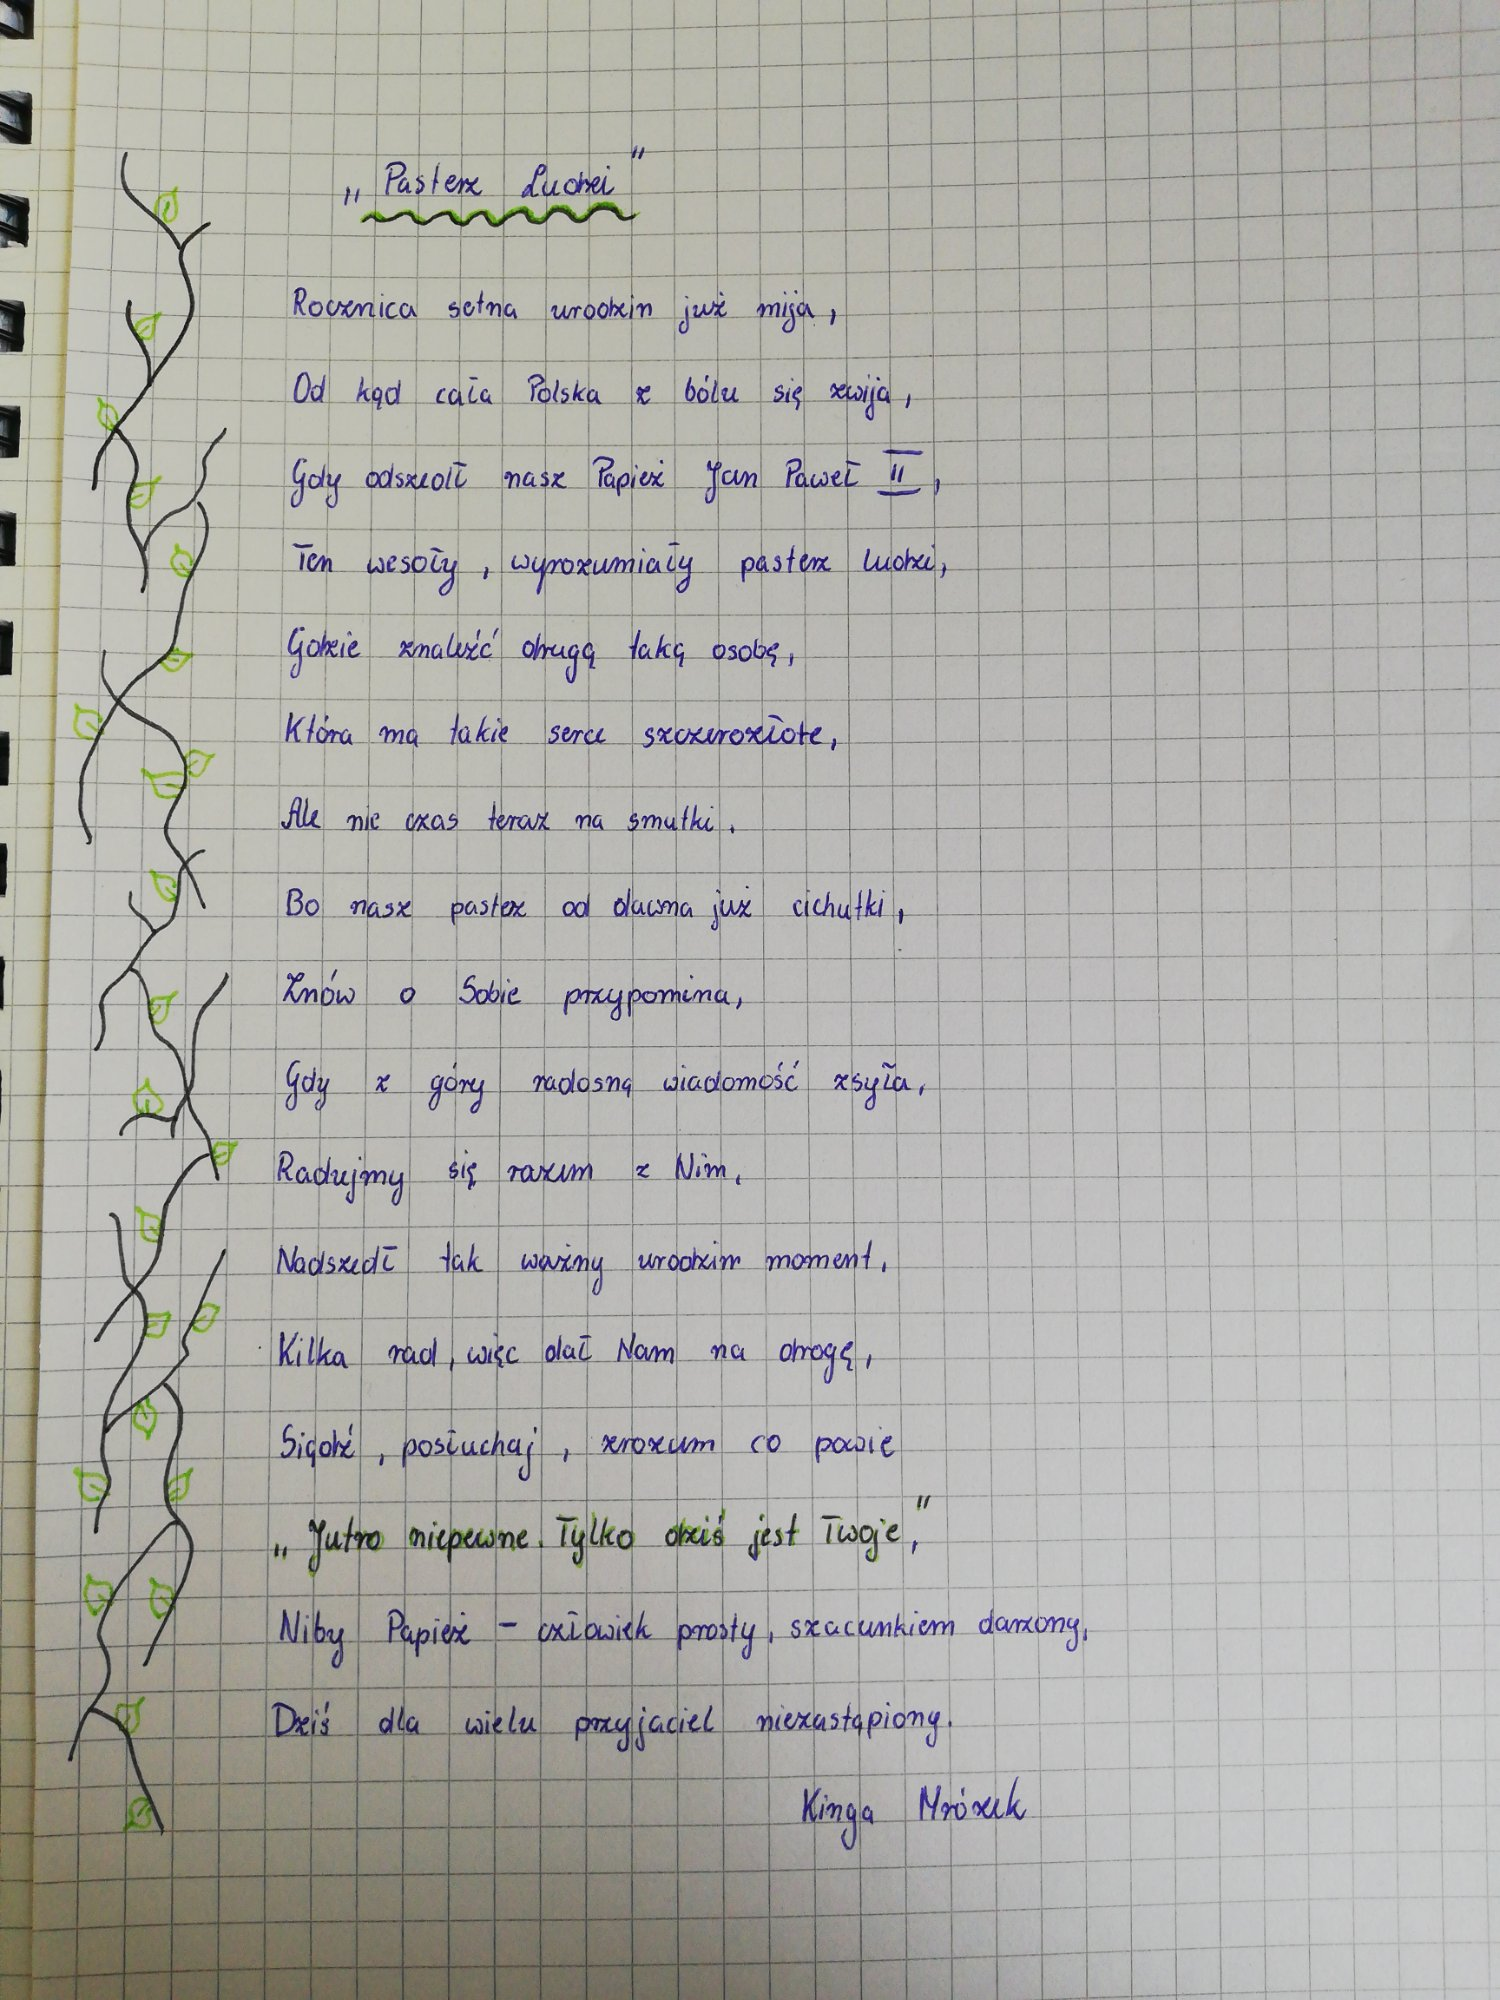 „Pasterz Ludzi"
Rocznica setna urodzin już mija,
Od kąd cała Polska z bólu się zwija,
Gdy odszedł nasz Papież Jan Paweł II,
Ten wesoły, wyrozumiały pasterz ludzi,
Gdzie znaleźć drugą taką osobę,
Która ma takie serce szczerozłote,
Ale nie czas teraz na smutki.
Bo nasz pasterz od dawna już cichutki,
Znów o Sobie przypomina,
Gdy z góry radosną wiadomość zsyła,
Radujmy się razem z Nim,
Nadszedł tak ważny urodzin moment,
Kilka rad, więc dał Nam na drogę,
Siądź, posłuchaj, zrozum co powie
„Jutro niepewne. Tylko dziś jest Twoje,"
Niby Papież - człowiek prosty, szacunkiem darzony,
Dziś dla wielu przyjaciel niezastąpiony.
Kinga Mrózek